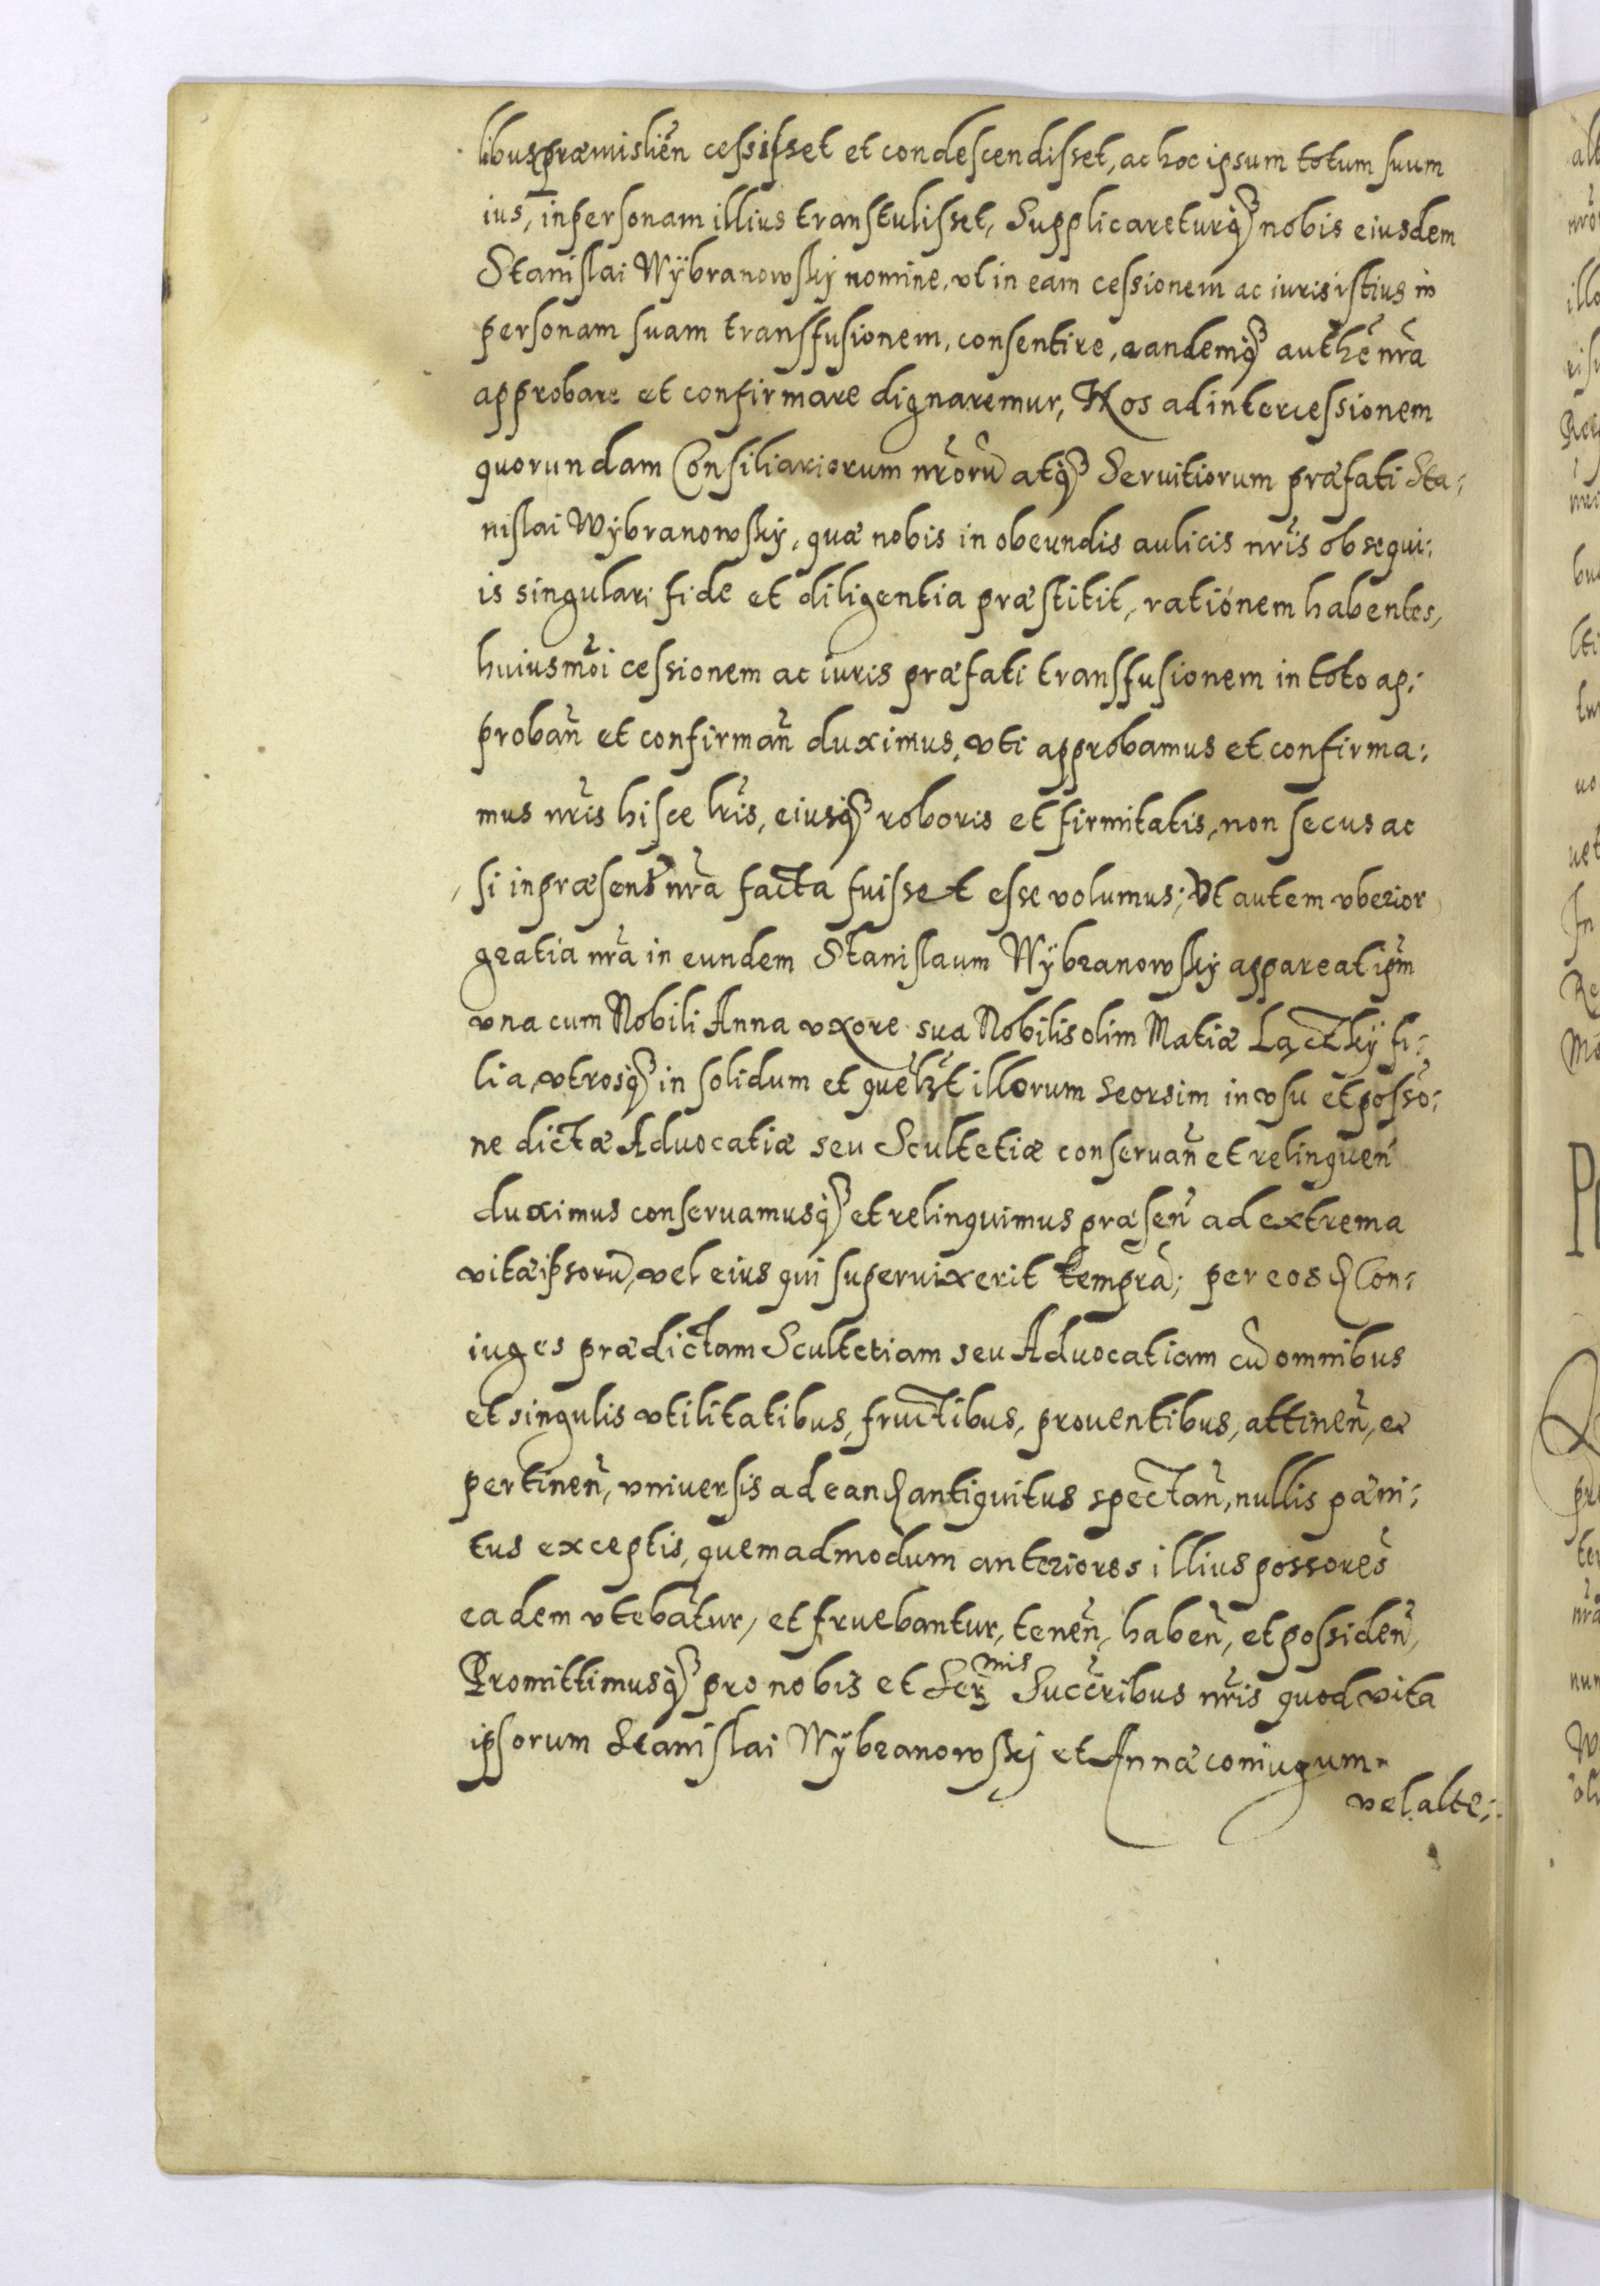 libus præmislien̄ cessisset et condescendisset, ac hoc ipsum totum suum
ius, in personam illius transtulisset, Supplicareturq₃ nobis eiusdem
Stanislai Wÿbranowskÿ nomine, vt in eam cessionem ac iuris istius in
personam suam transffusionem, consentire, eandemq₃ authe n̄ra
approbare et confirmare dignaremur, Nos ad intercessionem
quorundam Consiliariorum n̄rorū atq₃ Seruitiorum præfati Sta:
nislai Wÿbranowskÿ, quæ nobis in obeundis aulicis n̄ris obsequi:
is singulari fide et diligentia præstitit, rationem habentes,
huiusmōi cessionem ac iuris præfati transffusionem in toto ap:
proban̄ et confirman̄ duximus, vti approbamus et confirma:
mus n̄ris hisce l̄ris, eiusq₃ roboris et firmitatis, non secus ac
si in præsent n̄ra facta fuisset esse volumus; Vt autem vberior
gratia n̄ra in eundem Stanislaum Wÿbranowskÿ appareat ip̄m
vna cum Nobili Anna vxore sua Nobilis olim Matiæ Łączkÿ fi:
lia, vtrosq₃ in solidum et quēlꝫt illorum seorsim in vsu et posso:
ne dictæ Aduocatiæ seu Scultetiæ conseruan̄ et relinquen̄
duximus conseruamusq₃ et relinquimus præsen̄ ad extrema
vitæ ipsorū, vel eius qui superuixerit tempra; per eosd Con:
iuges prædictam Scultetiam seu Aduocatiam cū omnibus
et singulis vtilitatibus, fructibus, prouentibus, attinen̄, et
pertinen̄, vniuersis ad eand antiquitus spectan̄, nullis pæni:
tus exceptis, quemadmodum anteriores illius possores
eadem vtebātur, et fruebantur, tenen̄, haben̄, et possiden̄,
Promittimusq₃ pro nobis et Ser^mis Succ̄ribus n̄ris quod vita
ipsorum Stanislai Wÿbranowskÿ et Annæ coniugum
vel alte: